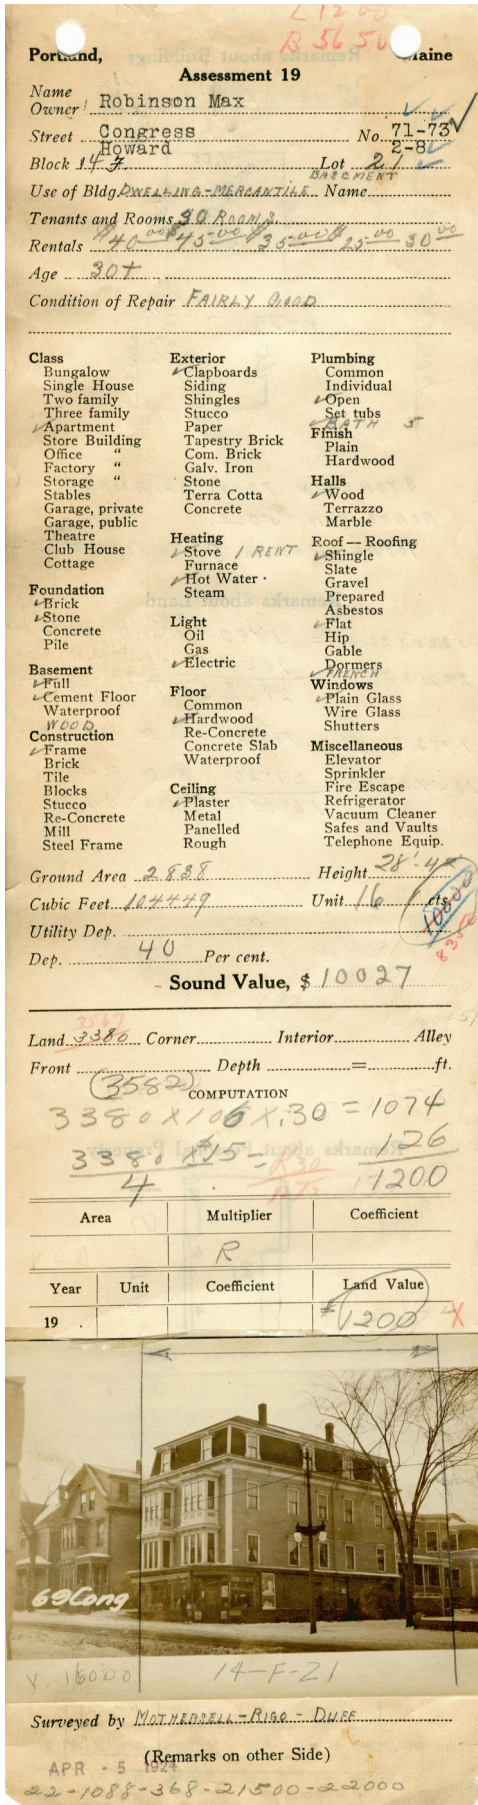 L 1200
B 5650
Portland, Maine
Assessment 19
Name
Owner Robinson Max
Street Congress No. 71-73
Howard 2-8
Block 14 F Lot 21
BASEMENT
Use of Bldg. DWELLING-MERCANTILE Name
Tenants and Rooms 30 ROOMS
Rentals $40 00 $45 00 $35 00 $25 00 30 00
Age 30+
Condition of Repair FAIRLY GOOD
Class
Bungalow
Single House
Two family
Three family
✓Apartment
Store Building
Office "
Factory "
Storage "
Stables
Garage, private
Garage, public
Theatre
Club House
Cottage
Foundation
✓Brick
✓Stone
Concrete
Pile
Basement
✓Full
✓Cement Floor
Waterproof
WOOD
Construction
✓Frame
Brick
Tile
Blocks
Stucco
Re-Concrete
Mill
Steel Frame
Exterior
✓Clapboards
Siding
Shingles
Stucco
Paper
Tapestry Brick
Com. Brick
Galv. Iron
Stone
Terra Cotta
Concrete
Heating
✓Stove 1 RENT
Furnace
✓Hot Water
Steam
Light
Oil
Gas
✓Electric
Floor
Common
✓Hardwood
Re-Concrete
Concrete Slab
Waterproof
Ceiling
✓Plaster
Metal
Panelled
Rough
Plumbing
Common
Individual
✓Open
Set tubs
✓BATH 5
Finish
Plain
Hardwood
Halls
✓Wood
Terrazzo
Marble
Roof — Roofing
✓Shingle
Slate
Gravel
Prepared
Asbestos
✓Flat
Hip
Gable
Dormers
✓FRENCH
Windows
✓Plain Glass
Wire Glass
Shutters
Miscellaneous
Elevator
Sprinkler
Fire Escape
Refrigerator
Vacuum Cleaner
Safes and Vaults
Telephone Equip.
Ground Area 2838 Height 28' 4"
Cubic Feet 104449 Unit 16 cts.
10000
Utility Dep.
Dep. 40 Per cent.
Sound Value, $ 10027
Land 3380 Corner Interior Alley
Front Depth = ft.
(3582)
COMPUTATION
3380 X 106 X .30 = 1074
3380 X 15 = 126
4 1200
Area Multiplier Coefficient
R
Year Unit Coefficient Land Value
19 $1200 X
69 Cong
V. 16000 14-F-21
Surveyed by MOTHERSELL-RIGO-DUFF
(Remarks on other Side)
APR - 5 1924
22-1088-368-21500-22000